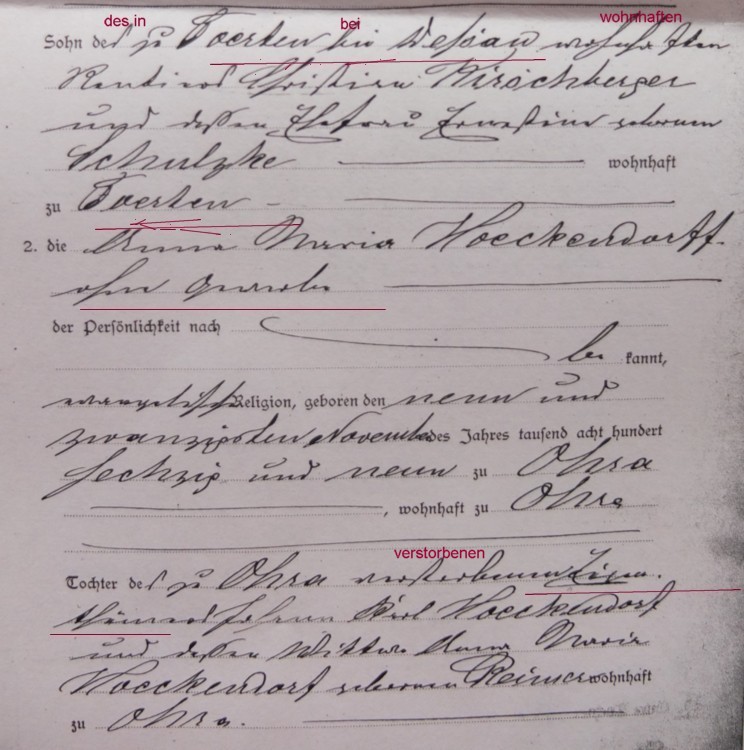 des,in bei wohnhaften
Sohn des zu Toerten bei Dessau wohnhaften
Rentiers Christian Kirschberger
und dessen Ehefrau Ernestine geborenen
Schulzke wohnhaft
zu Toerten
2. die Anna Maria Hoeckendorff
ohne Gewerbe
der Persönlichkeit nach
be kannt,
evangelischer Religion, geboren den neun und
zwanzigsten November des Jahres tausend acht hundert
sechzig und neun zu Ohra
, wohnhaft zu Ohra
verstorbenen
Tochter des zu Ohra verstorbenen Eigen
thümers Karl Hoeckendorf
und dessen Wittwe Anna Maria
Hoeckendorf geborenen Reimer wohnhaft
zu Ohra.